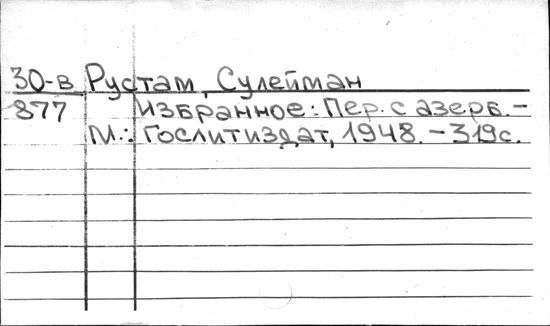 30-в Рустам, Сулейман
877 Избранное: Пер. с азерб. -
М.: Гослитиздат, 1948. - 319с.